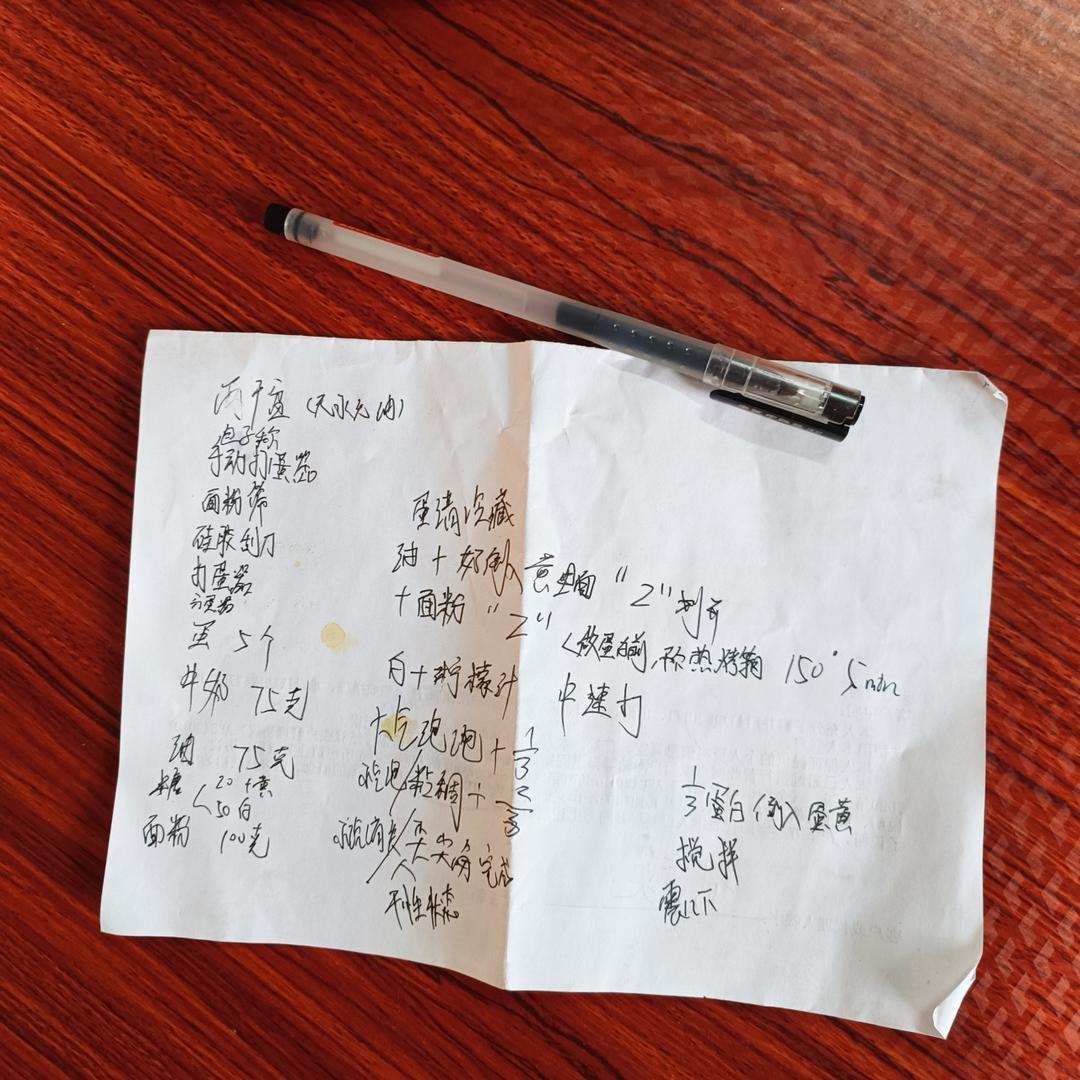 两干盆（无水无油）
电子称
手动打蛋器
面粉筛
硅胶刮刀
打蛋器
分蛋器
蛋 5个
牛奶 75克
油 75克
糖 20+黄
50白
面粉 100克
蛋清冷藏
油+奶倒入黄 面 “Z”
+面粉 “Z”
<做蛋白前，预热烤箱 150° 5min
白+柠檬汁 中速打
大气泡泡+1/3
粘稠+2/3
尖角 完成
干性状态
1/3蛋白倒入蛋黄
搅拌
震几下